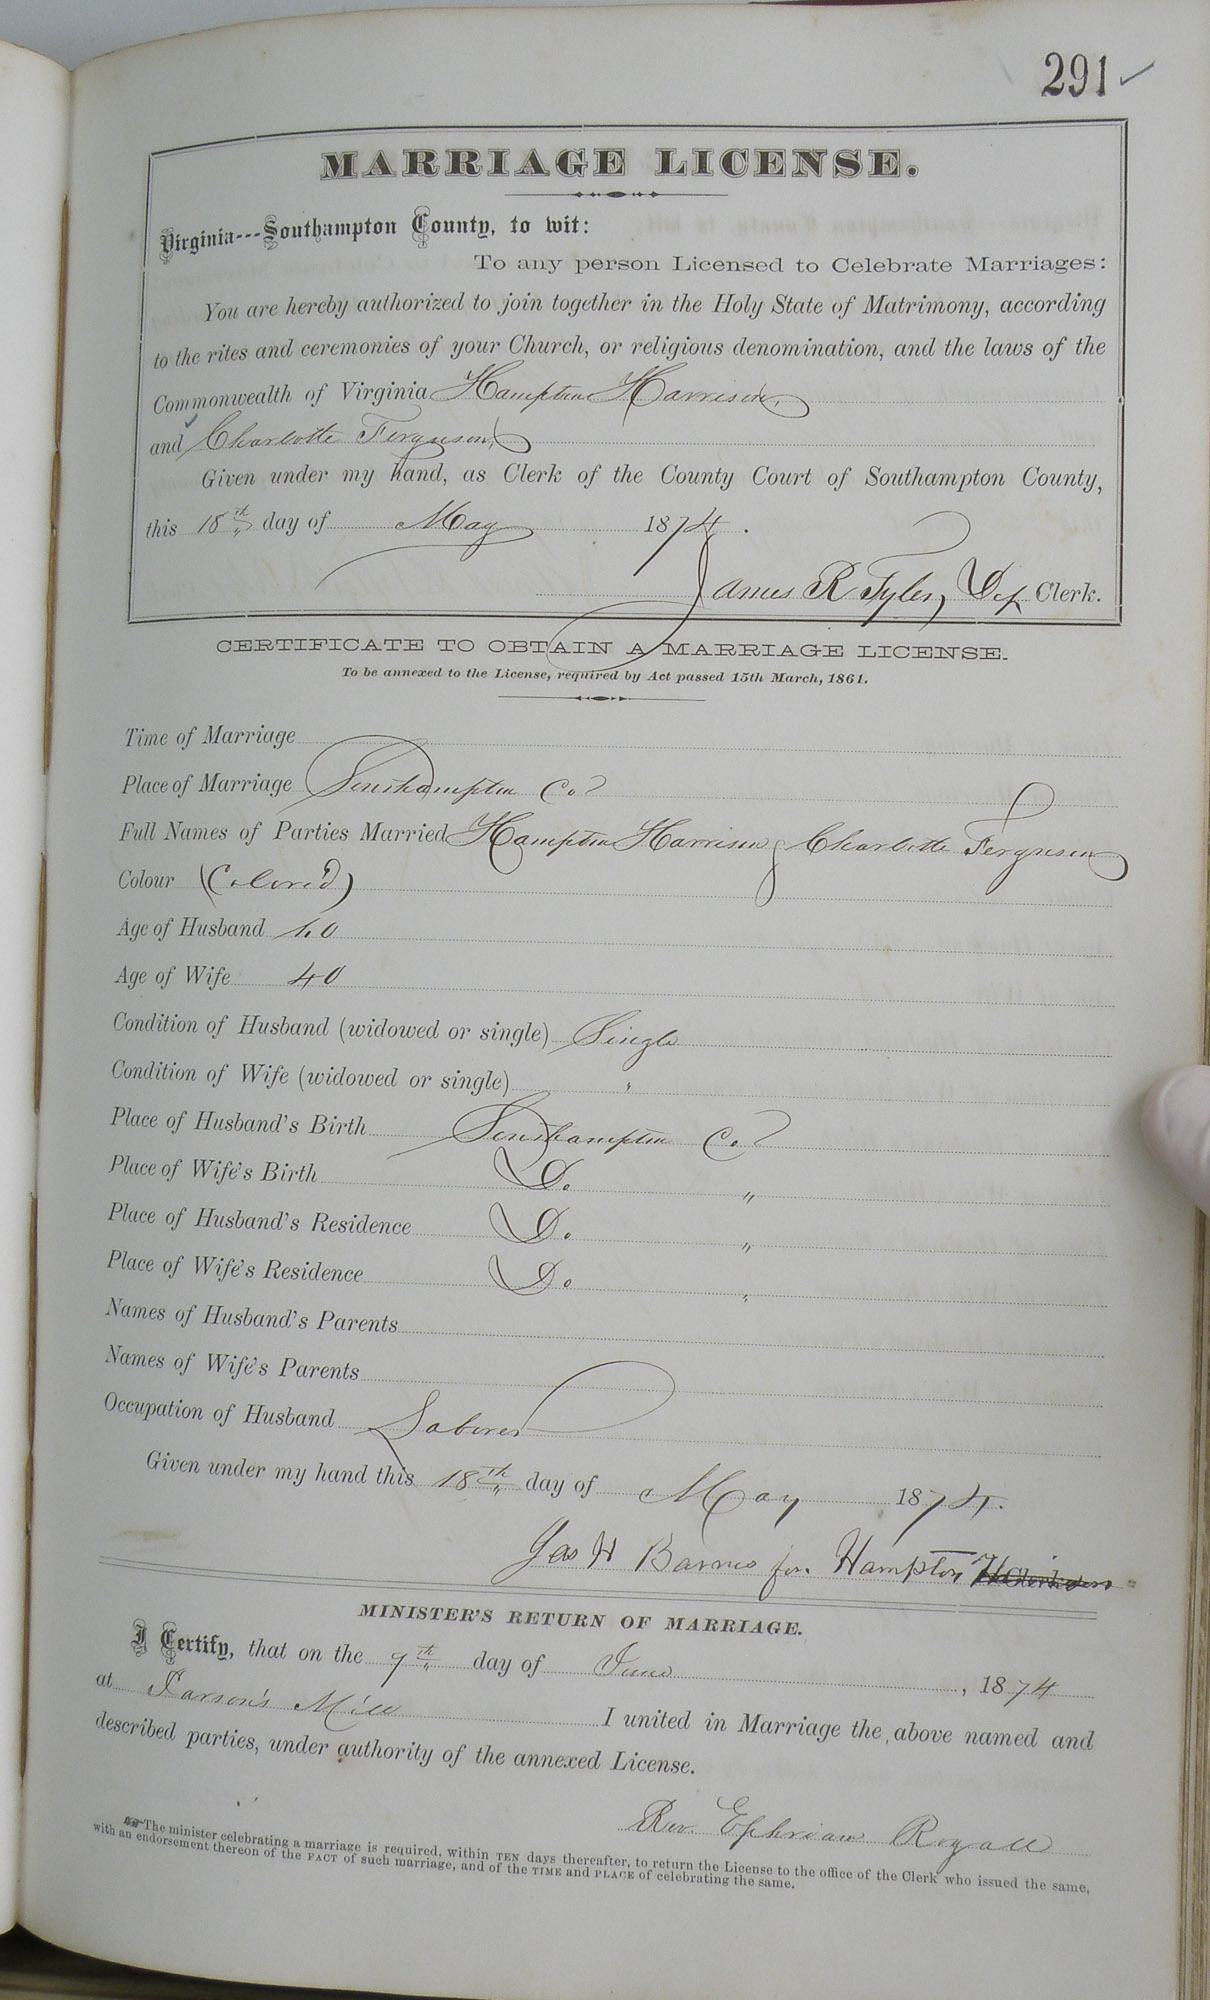 291
MARRIAGE LICENSE.
Virginia---Southampton County, to wit:
To any person Licensed to Celebrate Marriages:
You are hereby authorized to join together in the Holy State of Matrimony, according
to the rites and ceremonies of your Church, or religious denomination, and the laws of the
Commonwealth of Virginia Hampton Harrison,
and Charlotte Ferguson,
Given under my hand, as Clerk of the County Court of Southampton County,
this 18th day of May 1874.
James R Tyler, Dep Clerk.
CERTIFICATE TO OBTAIN A MARRIAGE LICENSE.
To be annexed to the License, required by Act passed 15th March, 1861.
Time of Marriage
Place of Marriage Southampton Co
Full Names of Parties Married Hampton Harrison & Charlotte Ferguson
Colour (Colored)
Age of Husband 40
Age of Wife 40
Condition of Husband (widowed or single) Single
Condition of Wife (widowed or single) "
Place of Husband's Birth Southampton Co
Place of Wife's Birth Do "
Place of Husband's Residence Do "
Place of Wife's Residence Do "
Names of Husband's Parents
Names of Wife's Parents
Occupation of Husband Laborer
Given under my hand this 18th day of May 1874.
Jas H Barnes for Hampton
MINISTER'S RETURN OF MARRIAGE.
I Certify, that on the 7th day of June, 1874
at Parson's Mill I united in Marriage the above named and
described parties, under authority of the annexed License.
Rev. Ephriam Royall
The minister celebrating a marriage is required, within TEN days thereafter, to return the License to the office of the Clerk who issued the same,
with an endorsement thereon of the FACT of such marriage, and of the TIME and PLACE of celebrating the same.